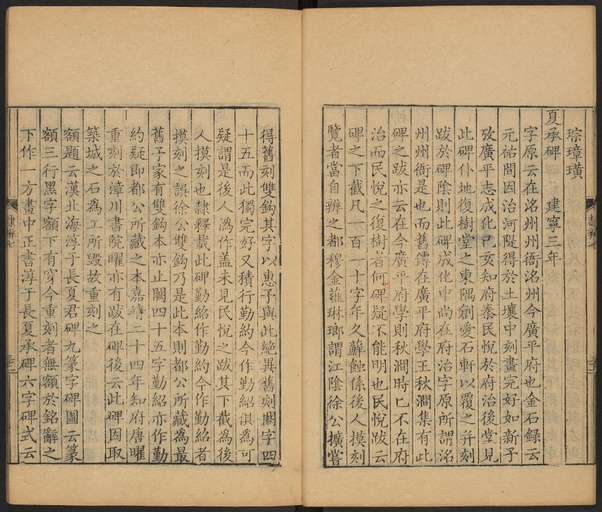 琮璋璜
夏承碑 建寧三年
字原云在洺州州衙洺州今廣平府也金石錄云
元祐間因治河隄得於土壤中刻畫完好如新予
攷廣平志成化己亥知府秦民悅於府治後堂見
此碑仆地復樹堂之東隅創愛石軒以覆之并刻
跋於碑陰則此碑成化中尚在府治字原所謂洺
州州衙是也而舊鐫在廣平府學王秋澗集有此
碑之跋亦云在今廣平府學則秋澗時已不在府
治而民悅之復樹者何碑疑不能明也民悅跋云
碑之下截凡一百一十字年久蘚蝕係後人摸刻
覽者當自辨之都穆金薤琳瑯謂江陰徐公擴嘗
得舊刻雙鈎其字以惠予與此絶異舊刻闕字四
十五而此獨完好又積行勤約今作勤紹淇為可
疑謂是後人僞作盖未見民悅之跋其下截為後
人摸刻也隸釋載此碑勤紹作勤約今作勤紹者
摸刻之誤徐公雙鈎乃是此本則都公所藏為最
舊予家有雙鈎本亦止闕四十五字勤紹亦作勤
約疑即都公所藏之本嘉靖二十四年知府唐曜
重刻於漳川書院曜亦有跋在碑後云此碑因取
築城之石為工所毁故重刻之
額題云漢北海淳于長夏君碑九篆字碑圖云篆
額三行黑字額下有穿今重刻者無額於銘辭之
下作一方書中正書淳于長夏承碑六字碑式云